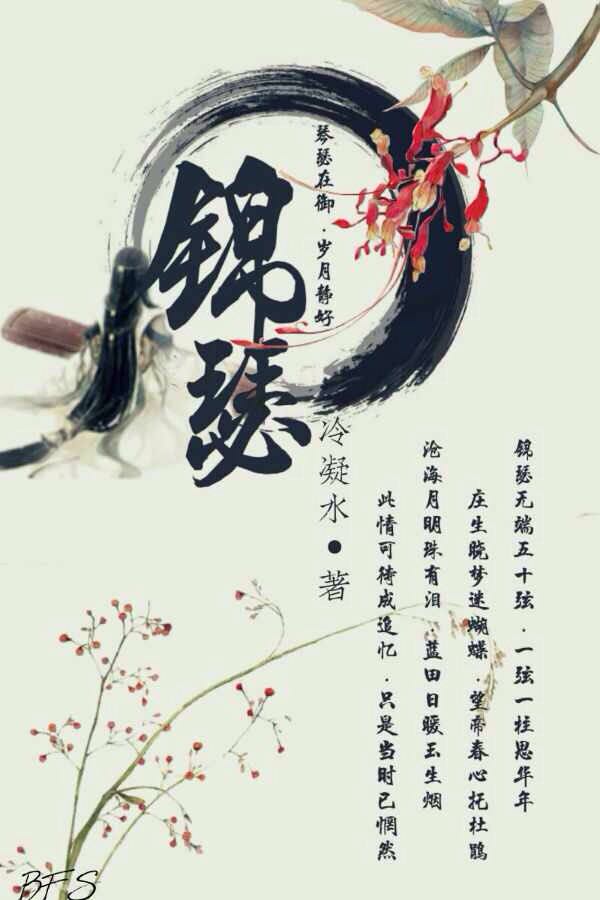 锦瑟
琴瑟在御·岁月静好
冷凝水●著
锦瑟无端五十弦·一弦一柱思华年
庄生晓梦迷蝴蝶·望帝春心托杜鹃
沧海月明珠有泪·蓝田日暖玉生烟
此情可待成追忆·只是当时已惘然
BFS